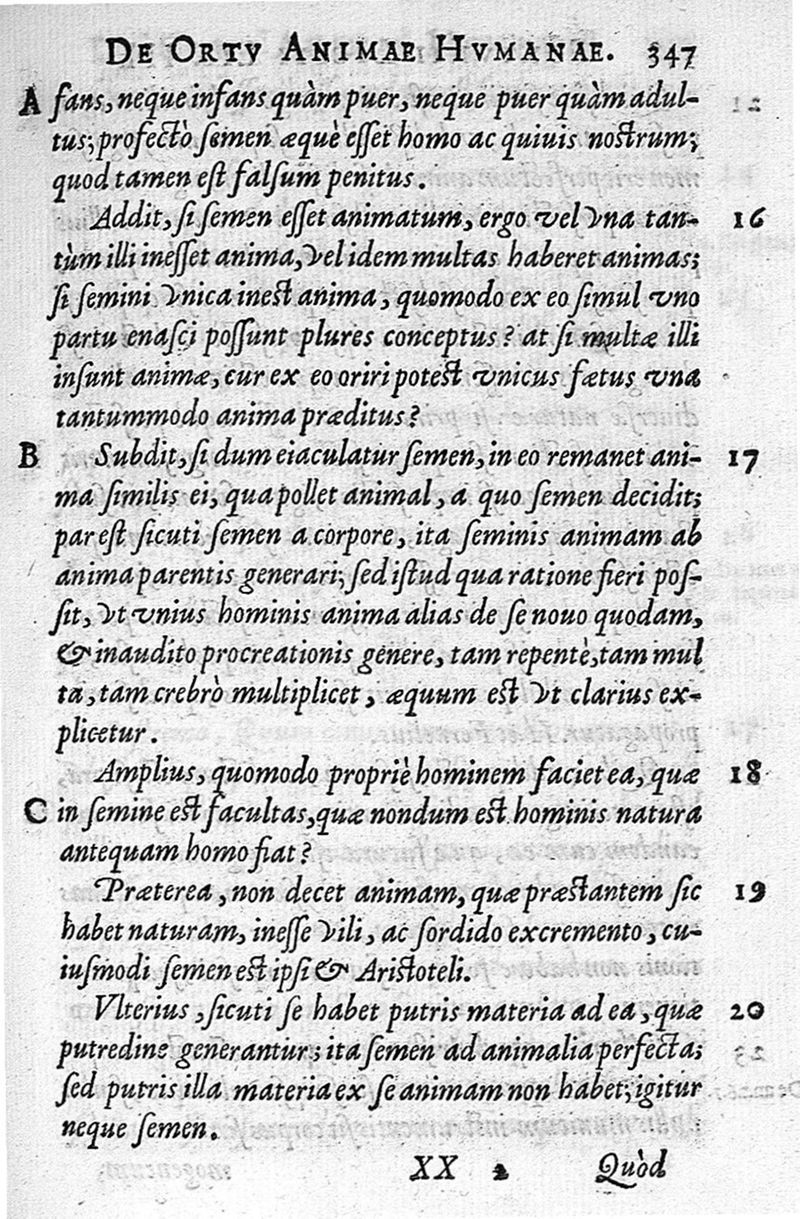 DE ORTV ANIMAE HVMANAE. 347
A fans, neque infans quàm puer, neque puer quàm adul-
tus; profectò semen æquè esset homo ac quiuis nostrum;
quod tamen est falsum penitus.
Addit, si semen esset animatum, ergo vel vna tan- 16
tùm illi inesset anima, vel idem multas haberet animas;
si semini vnica inest anima, quomodo ex eo simul vno
partu enasci possunt plures conceptus? at si multæ illi
insunt animæ, cur ex eo oriri potest vnicus fætus vna
tantummodo anima præditus?
B Subdit, si dum eiaculatur semen, in eo remanet ani- 17
ma similis ei, qua pollet animal, a quo semen decidit;
par est sicuti semen a corpore, ita seminis animam ab
anima parentis generari; sed istud qua ratione fieri pos-
sit, vt vnius hominis anima alias de se nouo quodam,
& inaudito procreationis genere, tam repentè, tam mul
ta, tam crebrò multiplicet, æquum est vt clarius ex-
plicetur.
Amplius, quomodo propriè hominem faciet ea, quæ 18
C in semine est facultas, quæ nondum est hominis natura
antequam homo fiat?
Præterea, non decet animam, quæ præstantem sic 19
habet naturam, inesse vili, ac sordido excremento, cu-
iusmodi semen est ipsi & Aristoteli.
Vlterius, sicuti se habet putris materia ad ea, quæ 20
putredine generantur; ita semen ad animalia perfecta;
sed putris illa materia ex se animam non habet; igitur
neque semen.
XX 2 Quòd